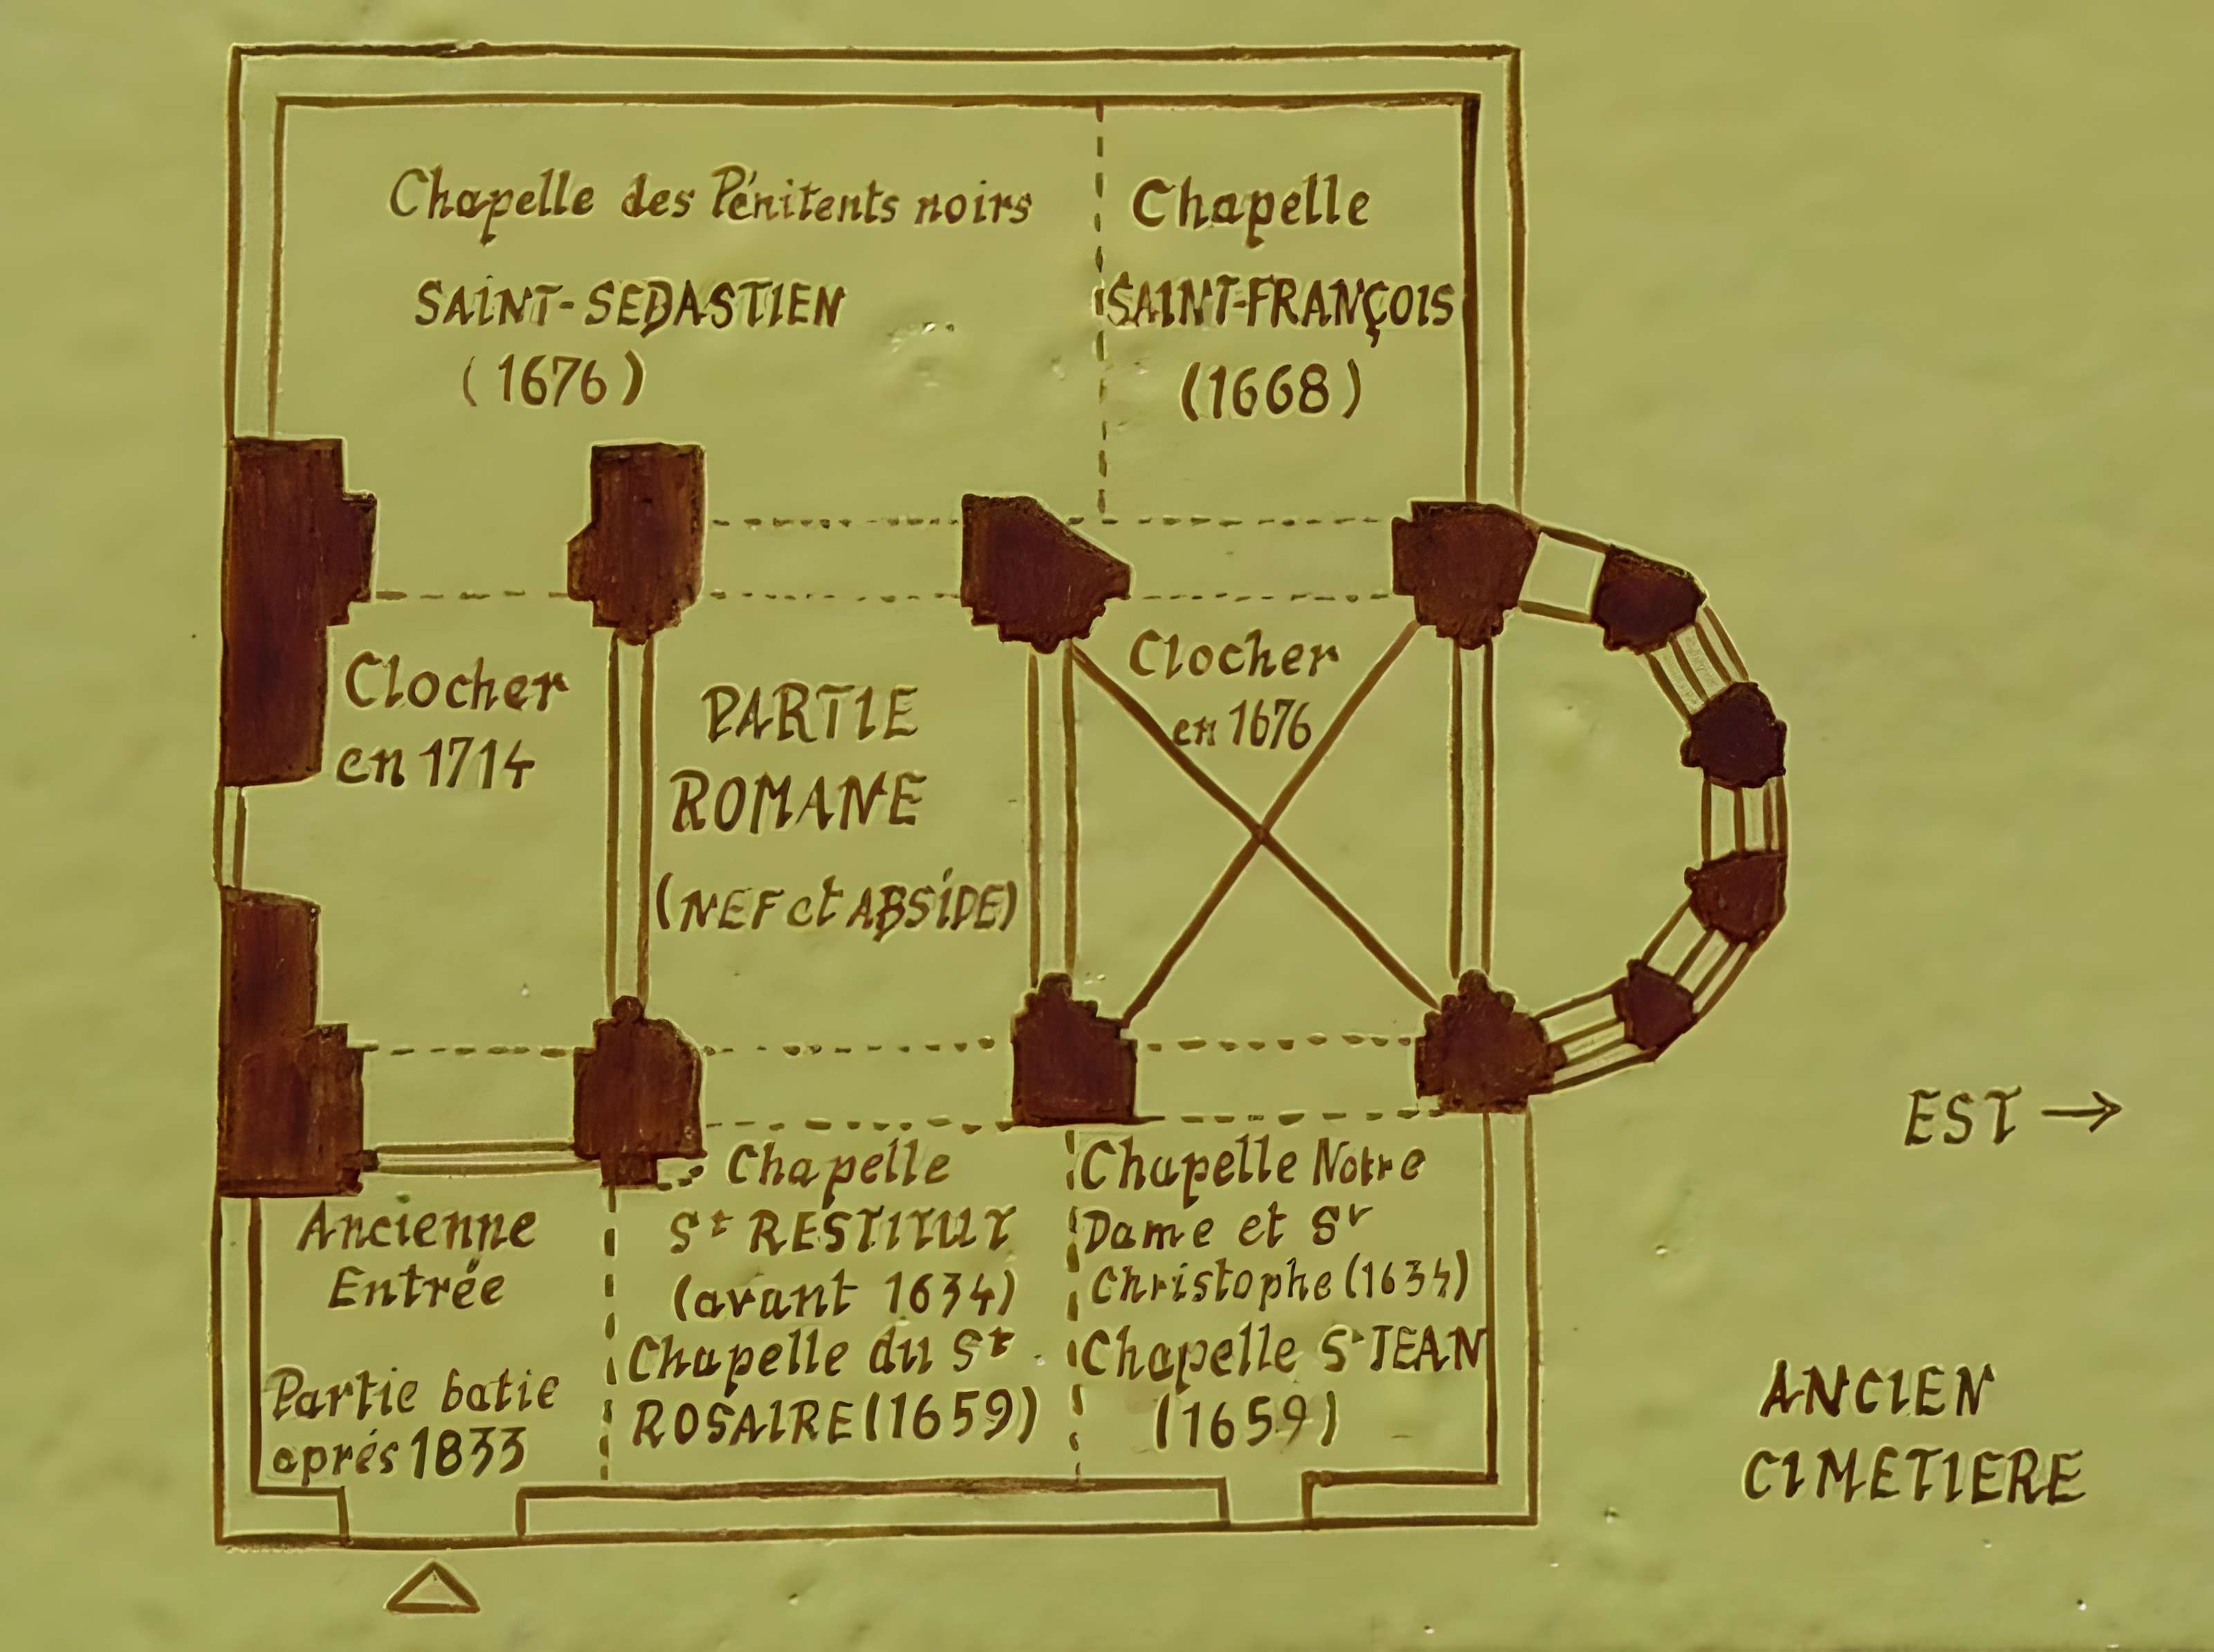 Chapelle des Pénitents noirs
SAINT-SEBASTIEN
(1676)
Chapelle
SAINT-FRANÇOIS
(1668)
Clocher
en 1714
PARTIE
ROMANE
(NEF et ABSIDE)
Clocher
en 1676
EST →
Ancienne
Entrée
Partie batie
aprés 1833
Chapelle
St RESTITUT
(avant 1634)
Chapelle du St
ROSAIRE (1659)
Chapelle Notre
Dame et St
Christophe (1634)
Chapelle St JEAN
(1659)
ANCIEN
CIMETIERE